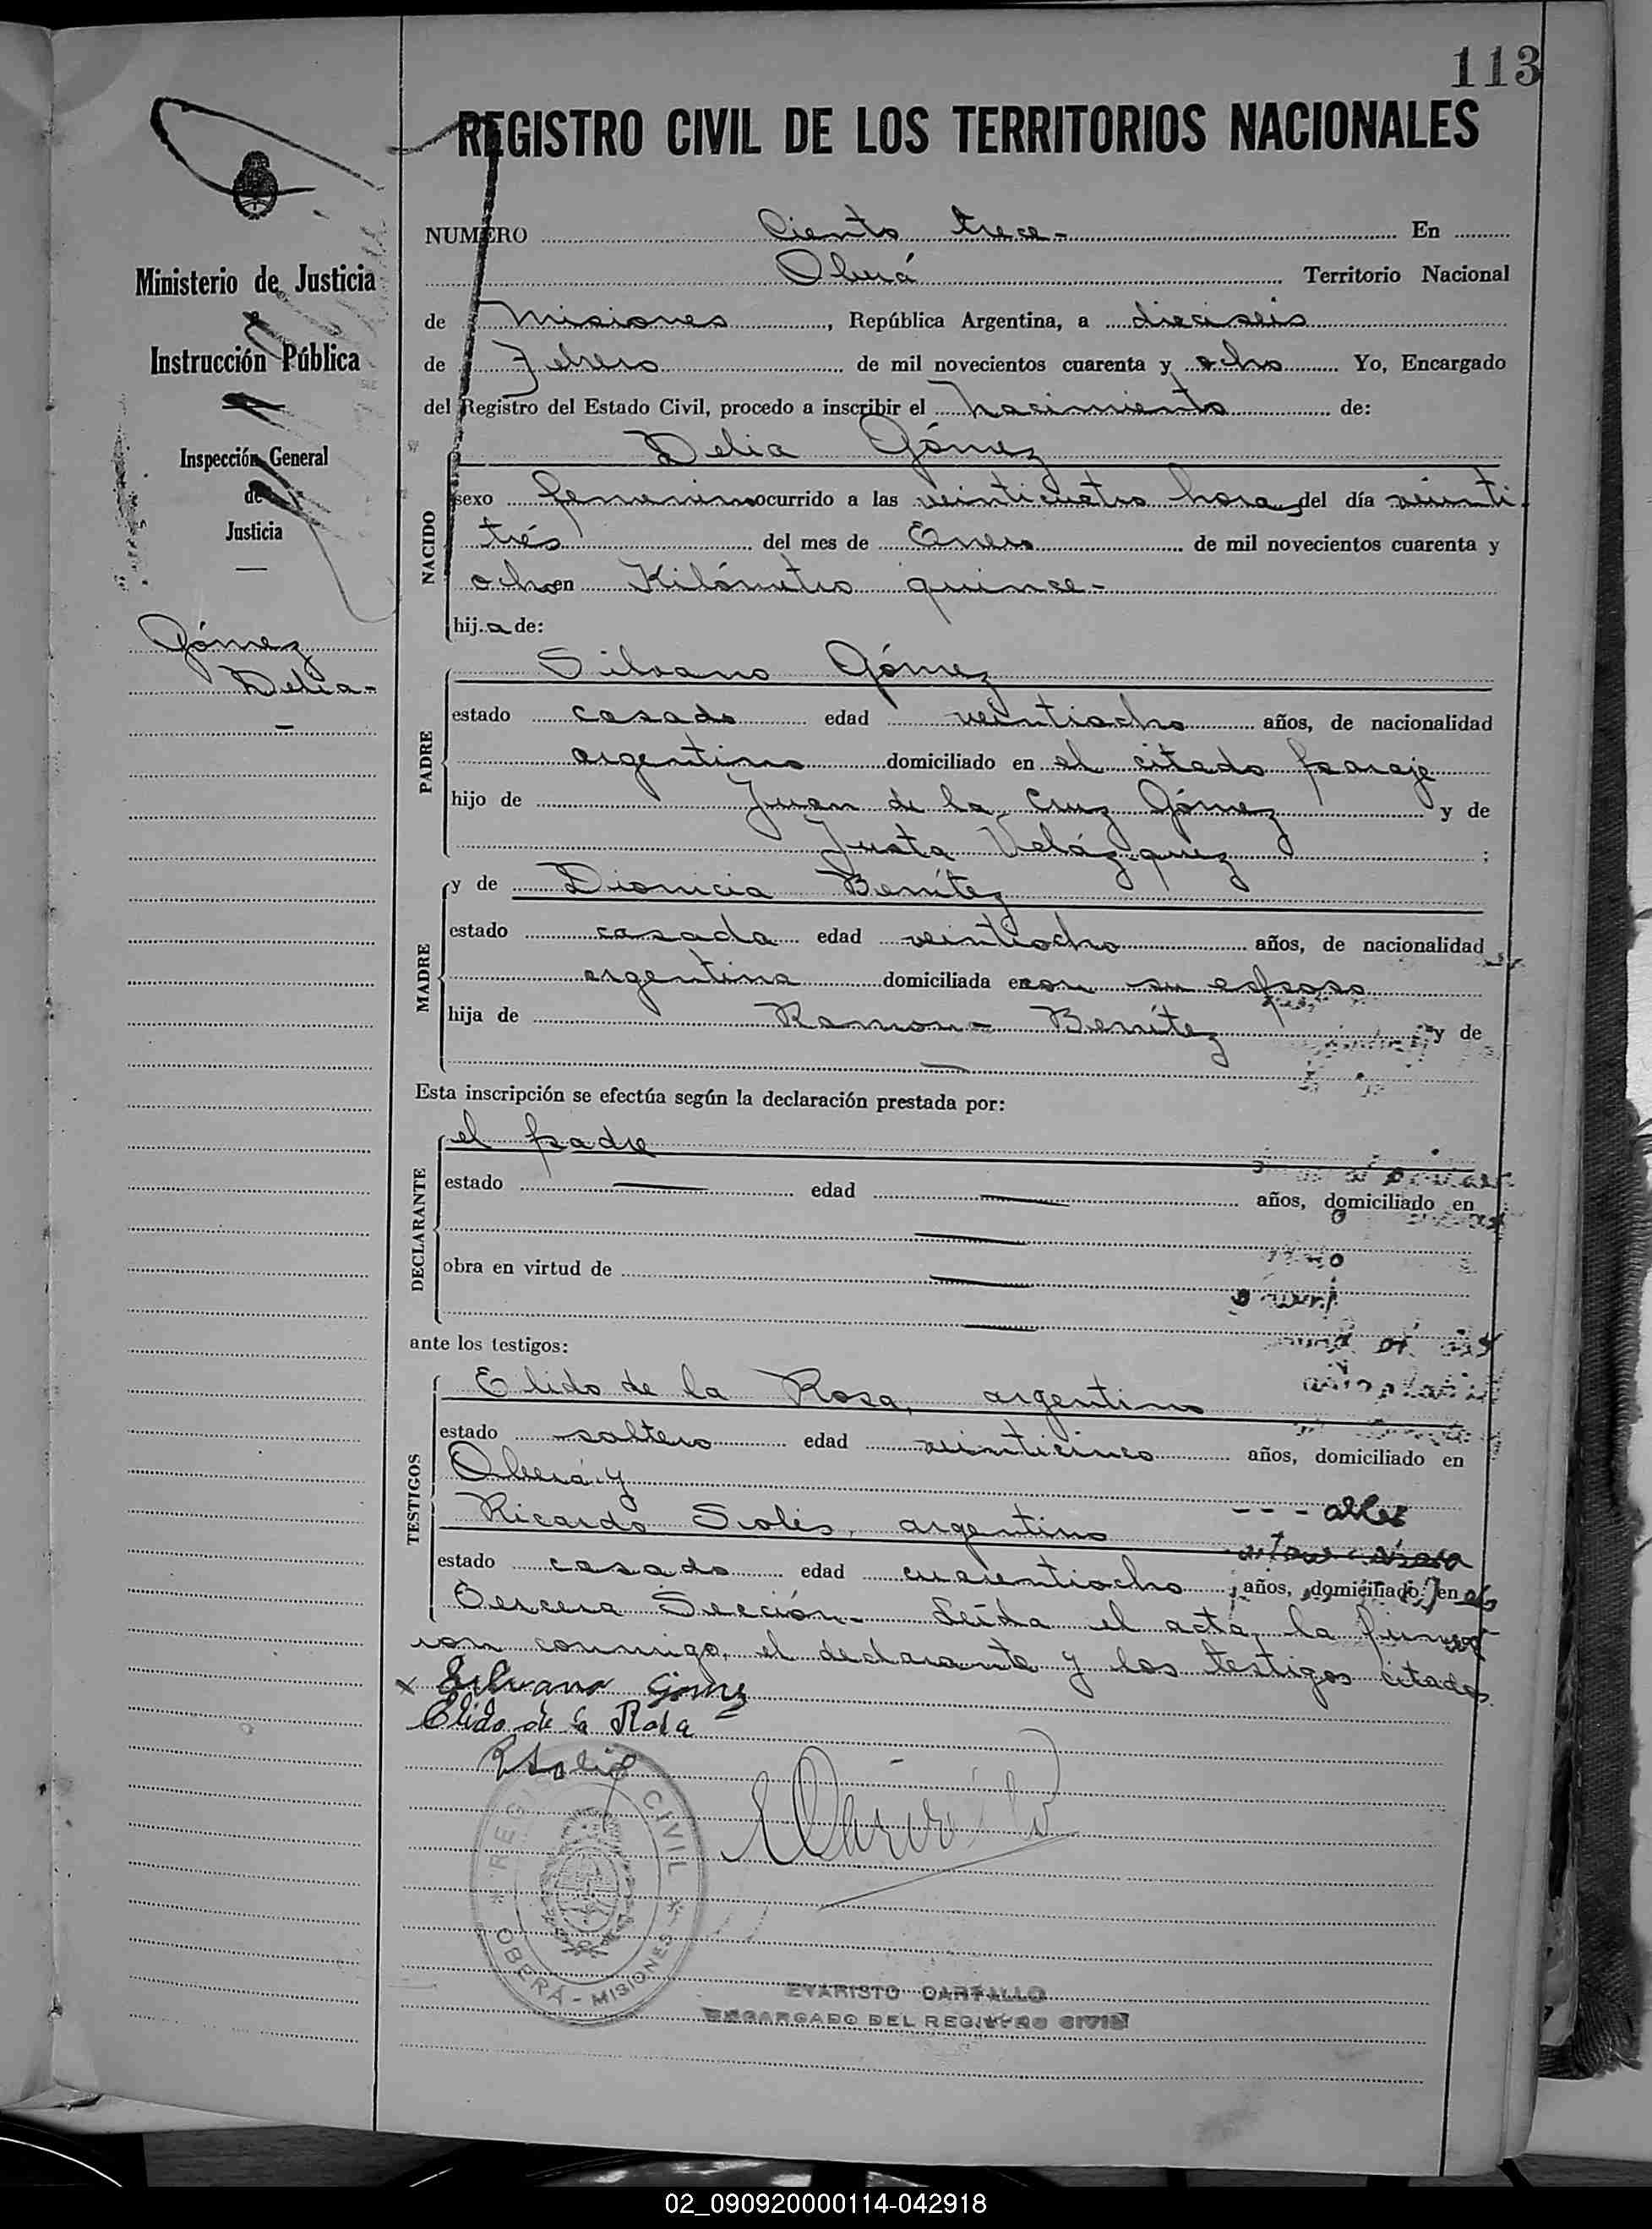 113
REGISTRO CIVIL DE LOS TERRITORIOS NACIONALES
Ministerio de Justicia
e
Instrucción Pública
Inspección General
de
Justicia
Gómez
Delia-
NUMERO Ciento trece- En
Oberá Territorio Nacional
de Misiones, República Argentina, a dieciseis
de Febrero de mil novecientos cuarenta y ocho Yo, Encargado
del Registro del Estado Civil, procedo a inscribir el nacimiento de:
Delia Gómez
NACIDO
sexo femenino ocurrido a las veinticuatro horas del día veinti-
trés del mes de Enero de mil novecientos cuarenta y
ocho en Kilómetro quince-
hija de:
PADRE
Silvano Gómez
estado casado edad veintiocho años, de nacionalidad
argentino domiciliado en el citado paraje
hijo de Juan de la Cruz Gómez y de
Justa Velázquez ;
MADRE
y de Dionicia Benítez
estado casada edad veintiocho años, de nacionalidad
argentina domiciliada con su esposo
hija de Ramon- Benítez y de
Esta inscripción se efectúa según la declaración prestada por:
DECLARANTE
el padre
estado edad años, domiciliado en
obra en virtud de
ante los testigos:
TESTIGOS
Elido de la Rosa, argentino
estado soltero edad veinticinco años, domiciliado en
Oberá y
Ricardo Solis, argentino
estado casado edad cuarentiocho años, domiciliado en
Tercera Sección- Leída el acta, la firma-
ron conmigo, el declarante y los testigos citados.
x Silvano Gomez
Elido de la Rosa
R Solis
REGISTRO CIVIL
OBERÁ - MISIONES
EVARISTO CARFALLO
ENCARGADO DEL REGISTRO CIVIL
02_090920000114-042918